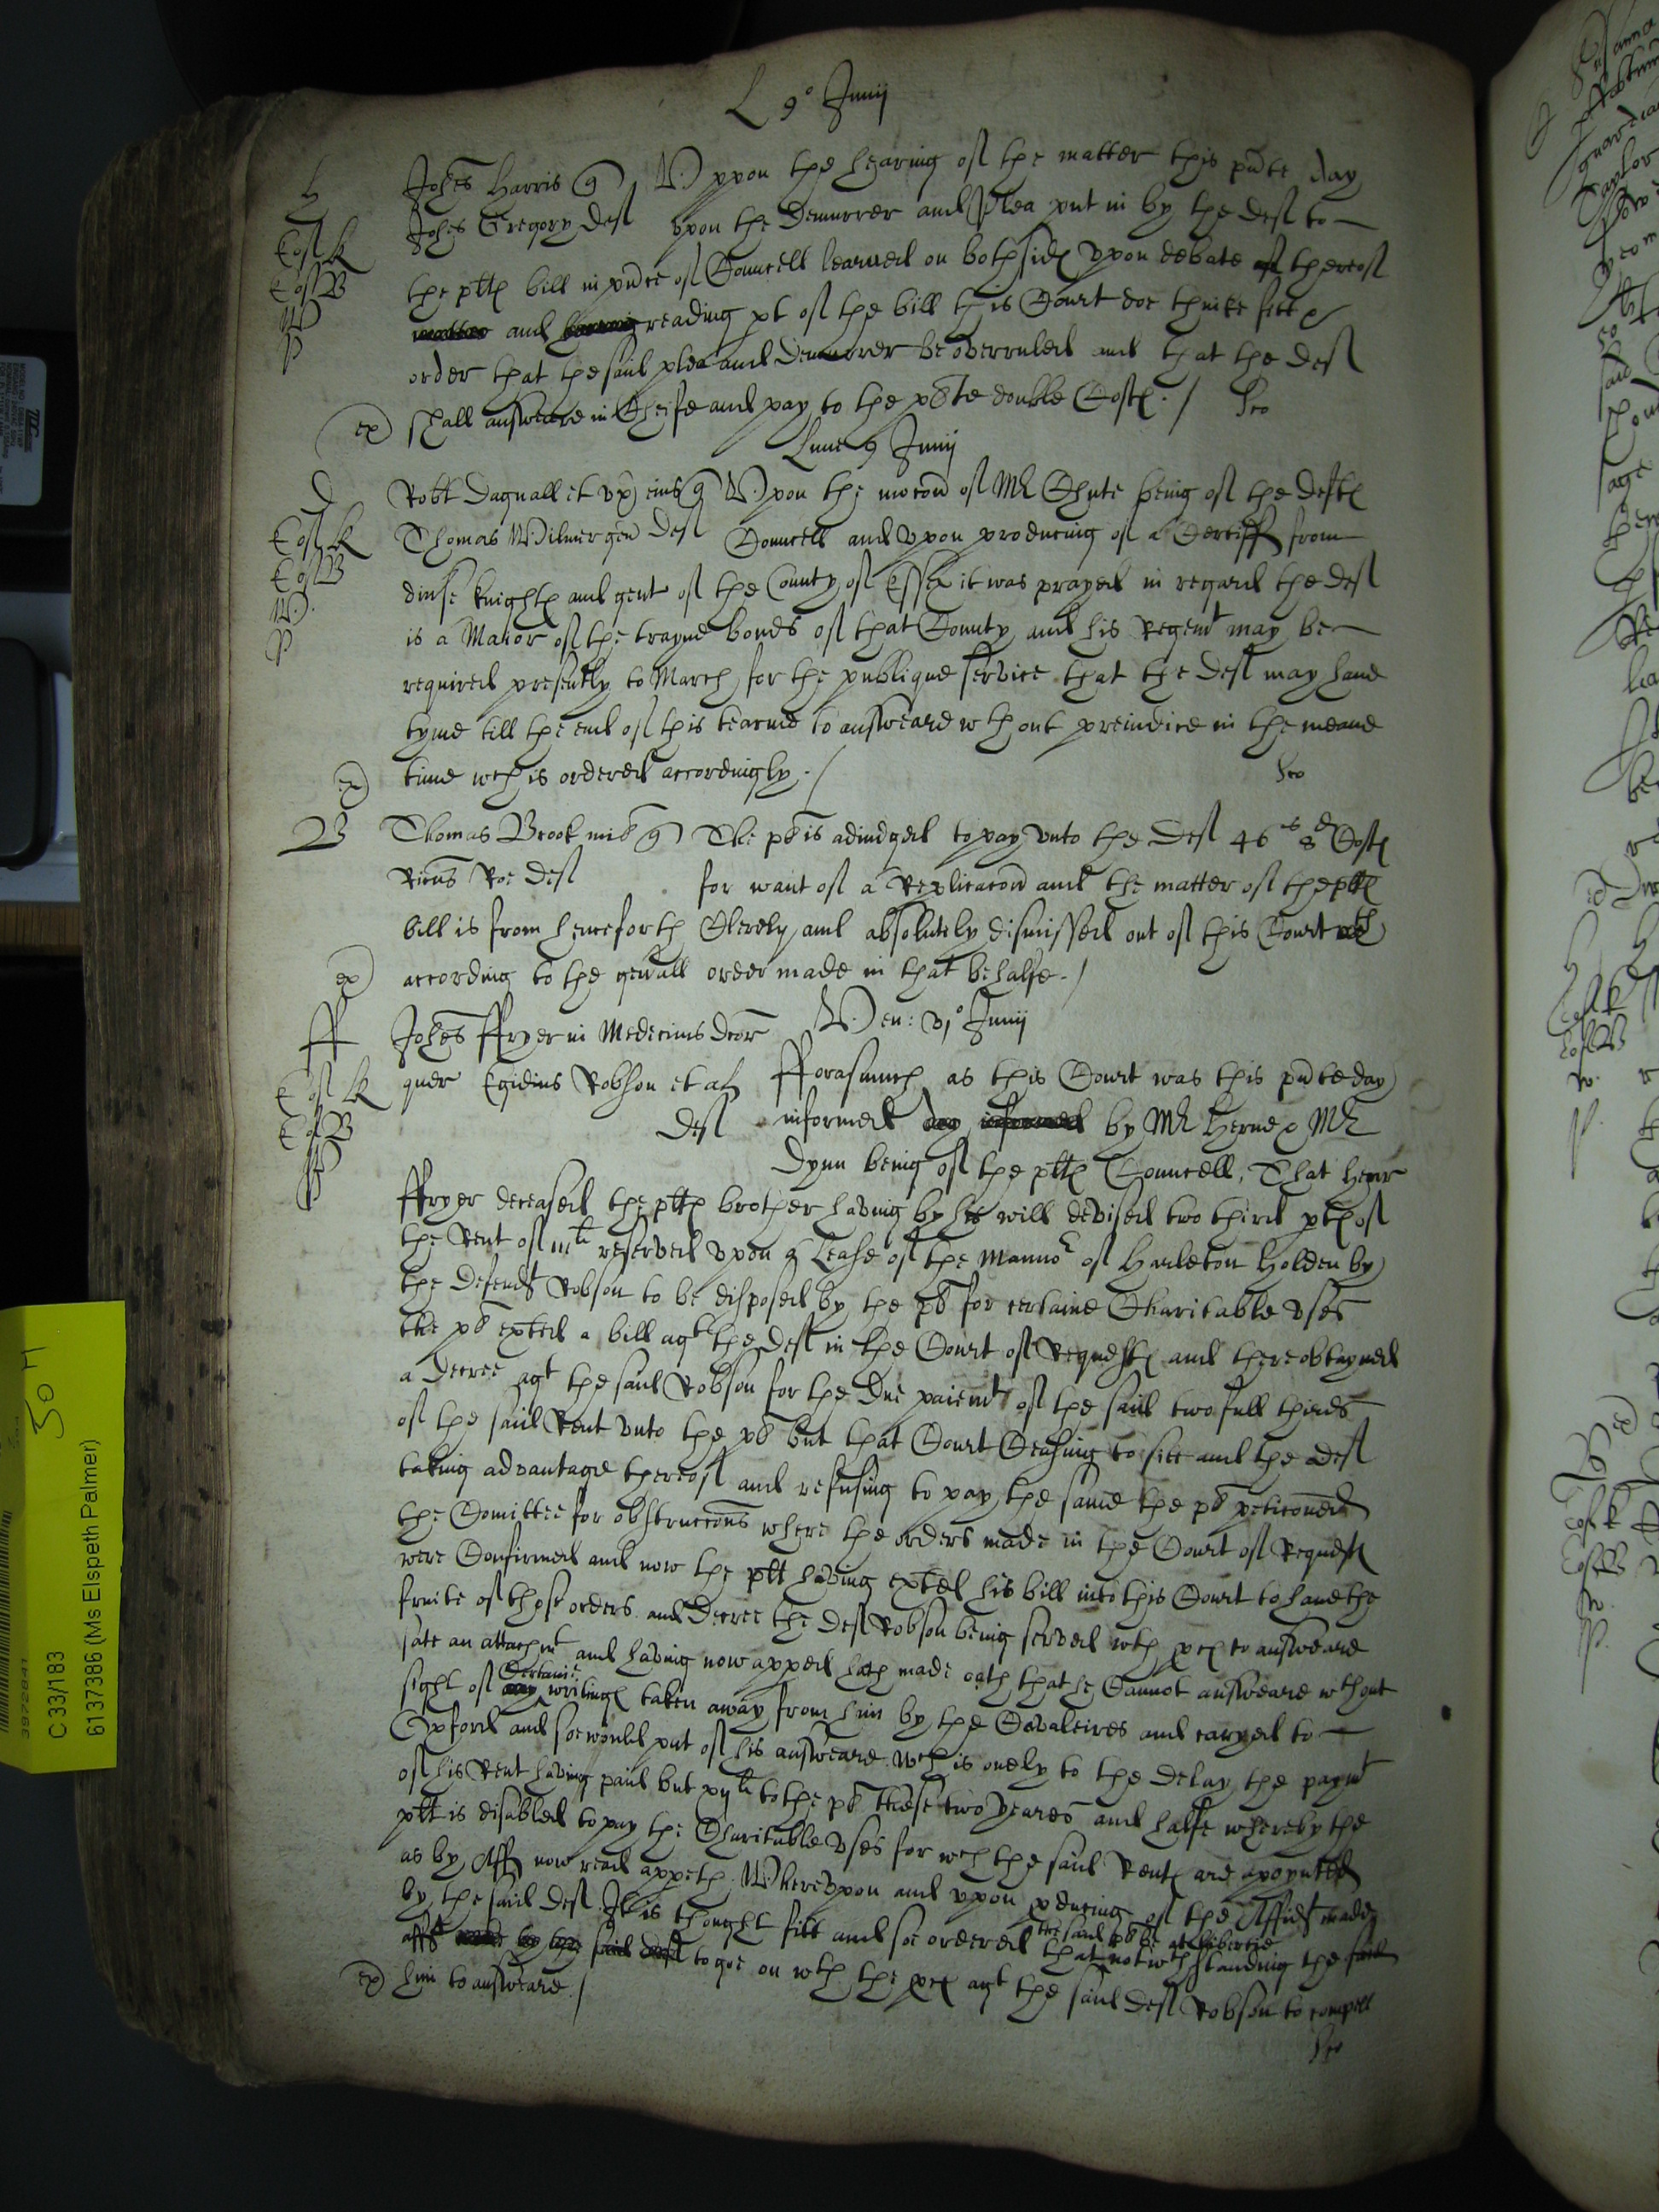 L 9° Junij
H
Johes Harris q Vppon the hearing of the matter this pnte day
Johes Gregory Def vpon the Demurrer and Plea put in by the def to
Cos K
Cos B
W
P
the plts bill in pnce of Councell learned on both sides vpon debate thereof
and reading pt of the bill this Court doe thinke fitt &
order that the said plea and Demurrer be overruled and that the def
ex shall answeare in Cheife and pay to the plte double Costs ./
Lune 9 Junij
D
Robt Dagnall et vx eius q Vpon the mocon of Mr Chute being of the defts
Cos K
Thomas Wilmer gen def Councell and vpon producing of a Certiff from
Cos B
W
P
divse knights and gent of the County of Essex it was prayed in regard the def
is a Maior of the trayne bonds of that County and his Regemt may be
required presently to March for the publique service that the def may have
tyme till the end of this tearme to answeare wthout preiudice in the meane
ex time wch is ordered accordingly ./
B Thomas Brook mil q The pl is adiudged to pay vnto the Def 46s 8d Costs
Ricus Roe def for want of a Replicacon and the matter of the plts
bill is from henceforth Clerely and absolutely dismissed out of this Court
ex according to the genall order made in that behalfe ./
Ven: vj° Junij
ff Johes ffryer in Medecinis Dcor
Cos K quer Egidius Robson et al fforasmuch as this Court was this pnte day
Cos B def informed by Mr Herne & Mr
P
Dynn being of the plts Councell, That Henr
ffryer deceased the plts brother having by his will devised two third pts of
the Rent of reserved vpon a Lease of the Mannor of Harleton Holden by
the Defendt Robson to be disposed by the pl for certaine Charitable vses
the pl exhted a bill agt the def in the Court of Requests and there obtayned
a Decree agt the said Robson for the due paiemt of the said two full thirds
of the said Rent vnto the pl but that Court Ceasing to sitt and the def
taking advantage thereof and refusing to pay the same the pl peticoned
the Comittee for obstruccons where the orders made in the Court of Requests
were Confirmed and now the plt having exhted his bill into this Court to have the
fruite of those orders and Decree the def Robson being served wth pces to answeare
sate an attachmt and having now apped hath made oath that he Cannot answeare wthout
sight of Certaine writings taken away from him by the Cavaleires and caryed to
Oxford and soe would put of his answeare wch is onely to the delay the paymt
of his Rent having paid but to the pl these two yeares and halfe whereby the
plt is disabled to pay the Charitable vses for wch the said Rents are apoynted
as by Aff now read appeth Wherevpon and vpon pducing of the Affidt made
by the said def It is thought fitt and soe ordered that notwthstanding the said
the said pl be at libertie
afft to goe on wth the pces agt the said def Robson to compell
ex him to answeare ./
C 33/183
6137386 (Ms Elspeth Palmer)